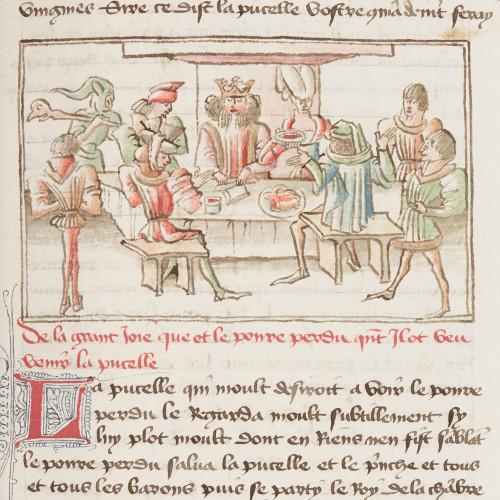 vingines Sire ce dist la pucelle vostre feray
De la grant Joie que et le povre perdu qnt Il ot veu
venir la pucelle
La pucelle qui moult desiroit a voir le povre
perdu le Regarda moult subtillement sy
luy plot moult dont en Riens nen fist sablat
le povre perdu salua la pucelle et le prnche et tous
et tous les barons puis se party le Roy de la chābre